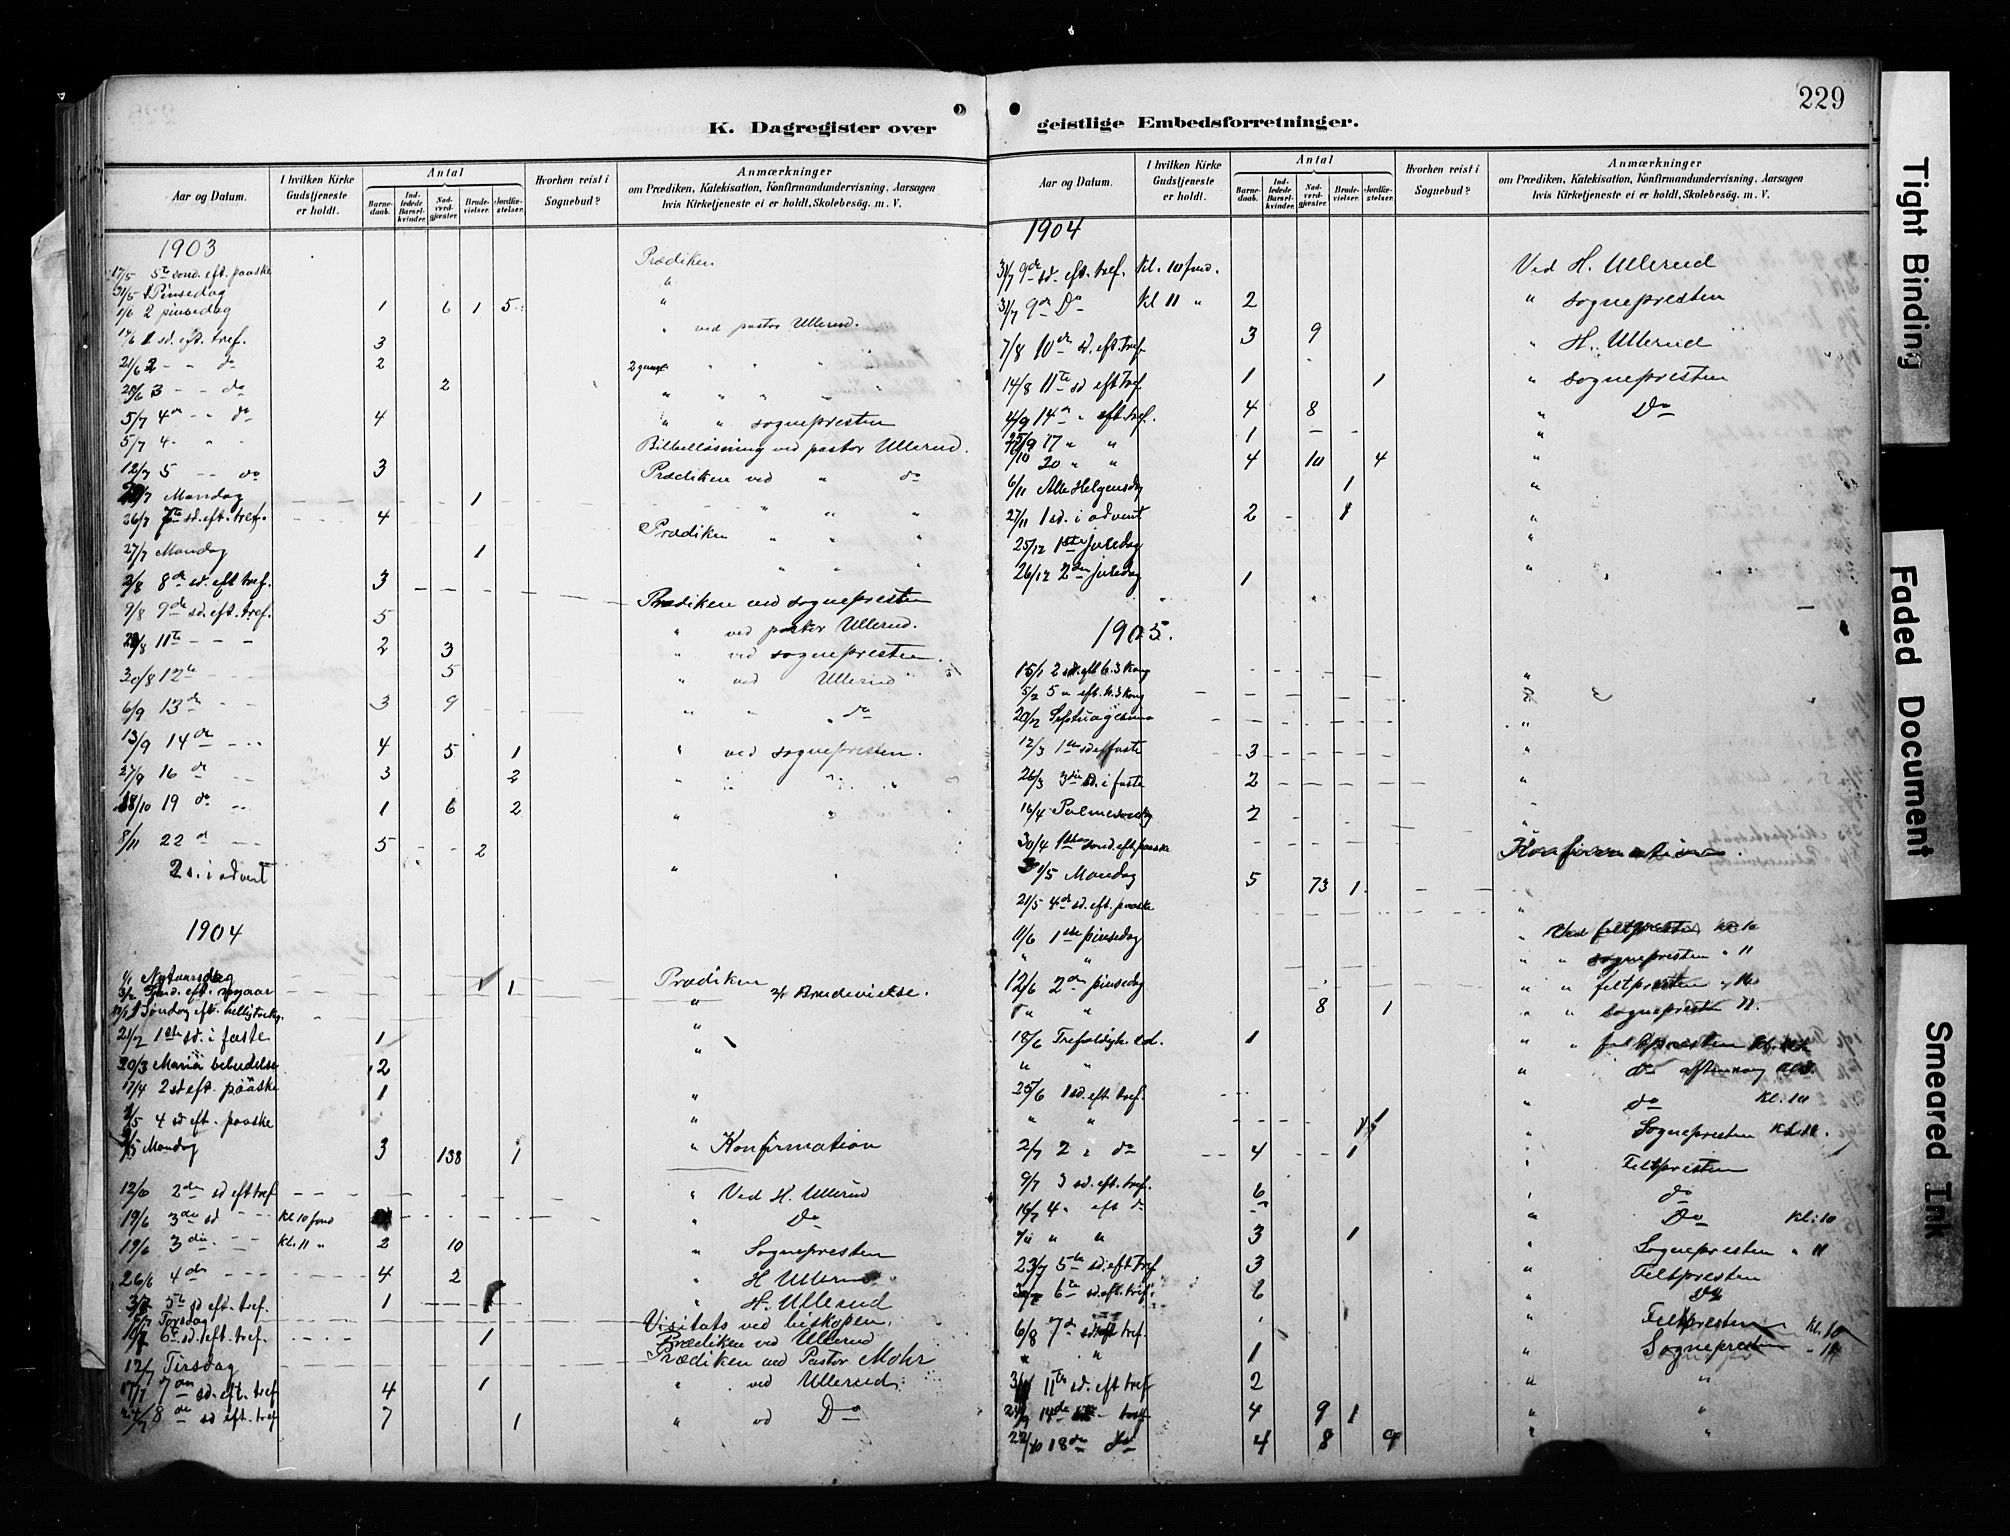 229
K. Dagregister over
geistlige Embedsforretninger.
Aar og Datum.
I hvilken Kirke Gudstjeneste er holdt.
Antal
Barnedaab.
Indledede Barselkvinder.
Nadverdgjester.
Brudevielser.
Jordfæstelser.
Hvorhen reist i Sognebud?
Anmærkninger
om Prædiken, Katekisation, Konfirmandundervisning, Aarsagen
hvis Kirketjeneste ei er holdt, Skolebesøg. m. V.
1903
17/5 5te sønd. eft. paaske Prædiken
31/5 1 Pinsedag "
1/6 2 pinsedag 1 6 1 5 "
14/6 1 sd. eft. tref. 3 " ved pastor Ullerud.
21/6 2 - - do 2
28/6 3 - - do 2
5/7 4de - - do 4 " " sognepresten
5/7 4 - " " Bibellæsning ved pastor Ullerud.
12/7 5 - - do 3 Prædiken ved " do
Mandag 1
26/7 7te sd. eft. tref. 4 Prædiken " " "
27/7 Mandag 1
2/8 8de sd. eft tref. 3
9/8 9de sd. eft. tref. 5 Prædiken ved sognepresten
" ved pastor Ullerud.
11te - - - 2 3 " ved sognepresten.
30/8 12te 5 " ved Ullerud
6/9 13de - - 3 9 " " do
13/9 14de - - 4 5 1 " ved sognepresten.
27/9 16de 3 2
18/10 19de 1 6 2
8/11 22d 5 - - 2
2 s. i advent
1904
1/1 Nytaarsdag 1 1 Prædiken
Brudevielse.
21/2 1ste sd. i faste 1
20/3 Mariæ bebudelse 2
17/4 2 sd eft. paaske 1
4 sd eft. paaske
Mandag 3 138 1 " Konfirmation
12/6 2den sd eft tref " Ved H. Ullerud
19/6 3die sd Kl 10 fmd " Do
19/6 3die - - Kl. 11 " 2 10 " Sognepresten
26/6 4de - - - 4 2 " H Ullerud
3/7 5te sd eft. tref. 1 " H. Ullerud
Torsdag Visitats ved biskopen.
10/7 6te sd. eft. tref. 1 Prædiken ved Ullerud
12/7 Tirsdag Prædiken ved Pastor Mohr
17/7 7de sd. eft. tref 4 1 " ved Ullerud.
24/7 8de sd eft. tref 7 1 " vd Do
Aar og Datum.
I hvilken Kirke Gudstjeneste er holdt.
Antal
Barnedaab.
Indledede Barselkvinder.
Nadverdgjester.
Brudevielser.
Jordfæstelser.
Hvorhen reist i Sognebud?
Anmærkninger
om Prædiken, Katekisation, Konfirmandundervisning, Aarsagen
hvis Kirketjeneste ei er holdt, Skolebesøg. m. V.
1904
31/7 9de sd. eft. tref. Kl. 10 fmd. Ved H. Ullerud
31/7 9de Do Kl 11 " 2 " sognepresten
7/8 10de sd. eft. tref 3 9 " H. Ullerud
14/8 11te sd eft tref 1 1 " sognepresten
4/9 14de " eft. tref. 4 8 " Do
25/9 17 " " 1 - - "
20 " " 4 10 4 "
6/11 Alle Helgensdag 1 "
27/11 1 sd. i advent 2 1 "
25/12 1ste juledag "
26/12 2den juledag 1 "
1905.
15/1 2 sd. eft h. 3 kong
5/2 5 " eft. h. 3 kong
Septuagesima
12/3 1ste sd i faste 3
26/3 3die sd. i faste 2
16/4 Palmesøndag 2
30/4 1ste sønd. eft. paaske Konfirmation.
1/5 Mandag 5 73 1
21/5 4de sd. eft. paaske
11/6 1ste pinsedag Ved feltpresten Kl 10
" " sognepresten " 11
12/6 2den pinsedag " " feltpresten
" " 8 1 " " sognepresten 11.
18/6 Trefoldigh. sd. 1 " " feltpresten
do aftensang
25/6 1 sd. eft tref. " do Kl: 10
" " Sognepresten Kl. 11.
2/7 2 " do 4 1 Feltpresten
9/7 3 sd. eft. tref. 6 do
16/7 4 " eft do " Do Kl: 10
" " 3 1 " Sognepresten " 11
23/7 5te sd. eft tref 3 " Feltpresten
6te sd. eft. tref. 6 " Do
6/8 7de sd eft tref. Feltpresten Kl. 10
" " 1 " Sognepresten " 11
11te sd. eft tref 2 " "
24/9 14de 4 9 1 " "
22/10 18de do 4 8 9 " "
Tight Binding
Faded Document
Smeared Ink